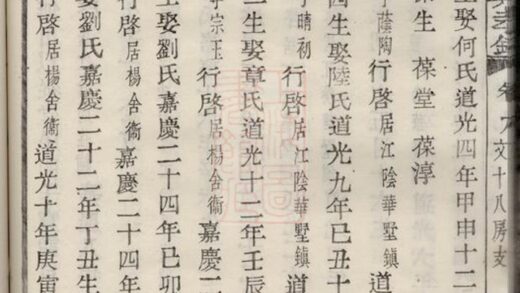 卷
八
文
十
八
房
支
生娶何氏道光四年甲申十二
生 葆堂 葆淳
蔭陶行啓居江陰華墅鎮道
四生娶陸氏道光九年己丑十
晴初 行啓居江陰華墅鎮道
二生娶章氏道光十二年壬辰
字宗玉 行啓居楊舍衞嘉慶二
生娶劉氏嘉慶二十四年己卯
行啓居楊舍衞嘉慶二十四年
娶劉氏嘉慶二十二年丁丑生
行啓居楊舍衞道光十年庚寅